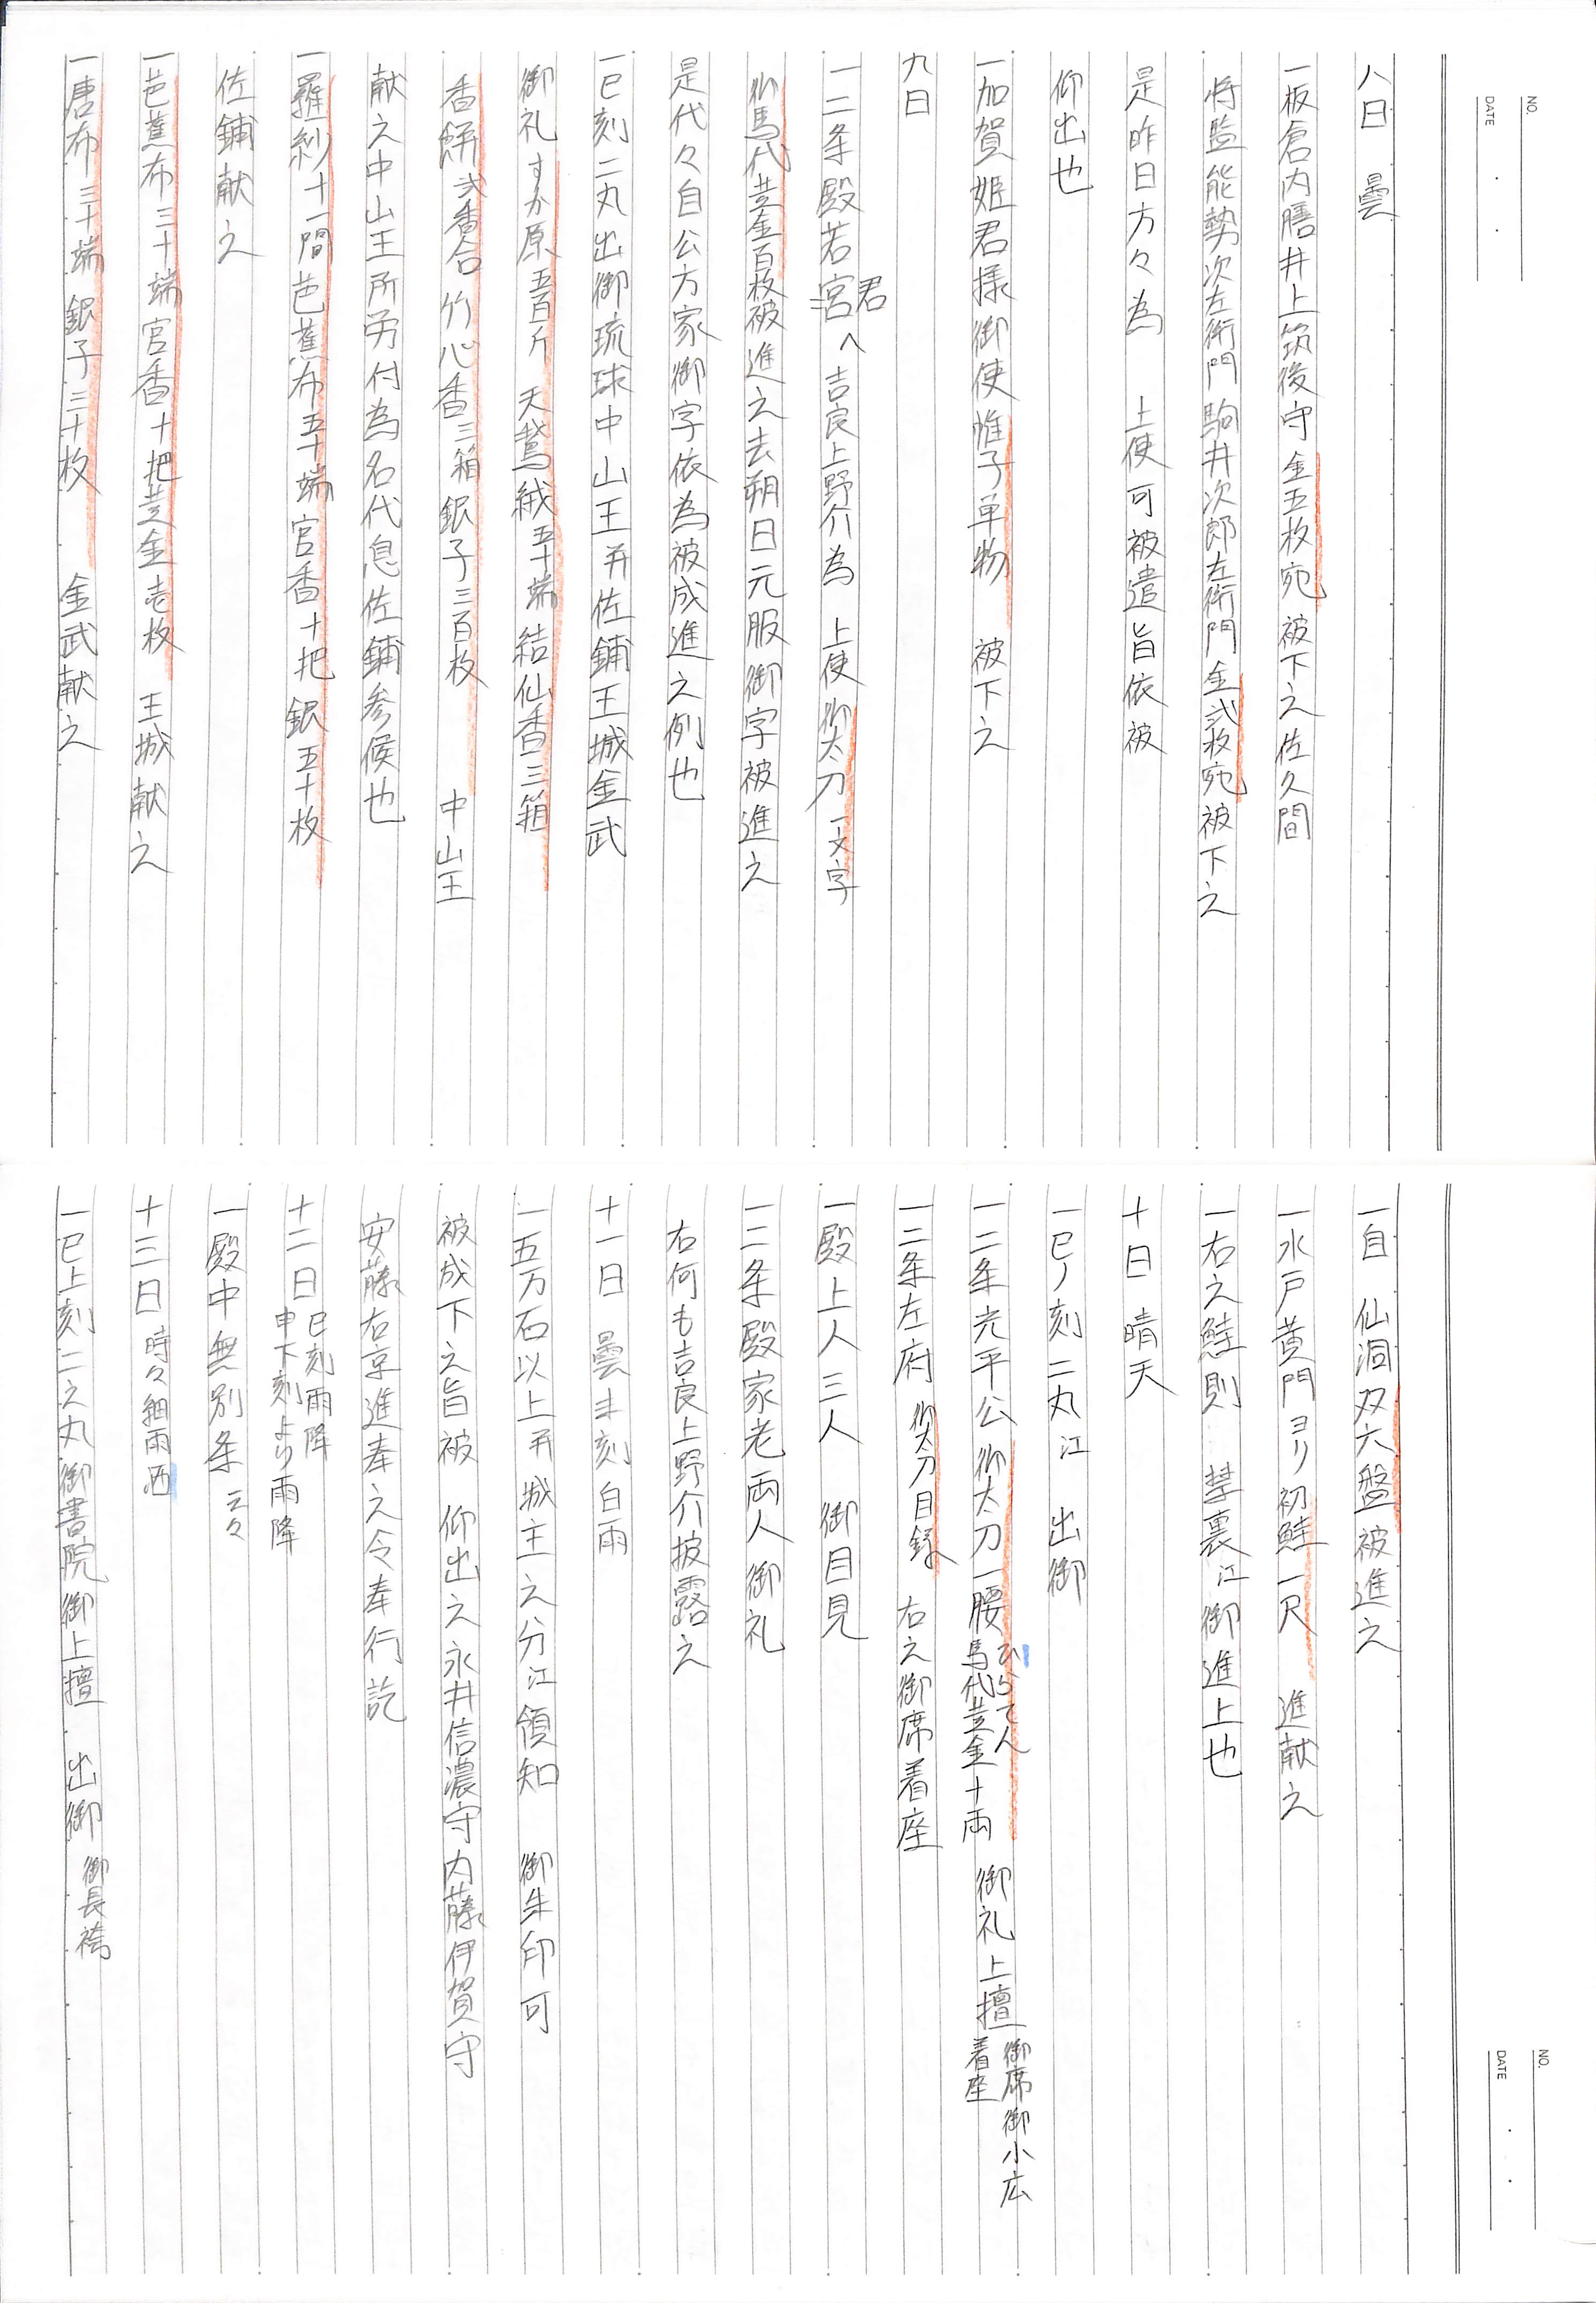 NO.
DATE
八日　曇
一板倉内膳井上筑後守　金五枚宛　被下之佐久間
将監能勢次左衛門　駒井次郎左衛門　金弐枚宛被下之
是昨日方々為　上使可被遣旨依被
仰出也
一加賀姫君様御使　帷子単物　被下之
九日
一二条殿若宮へ　吉良上野介為　上使　御太刀一文字
君
御馬代黄金百枚被進之去朔日元服御字被進之
是代々自公方家御字依為被成進之例也
一巳刻二丸出御琉球中山王并佐鋪王城金武
御礼　すか原五百斤　天鵞絨五十端　結仙香三箱
香餅弐香合　竹心香三箱　銀子三百枚　中山王
献之中山王所労付為名代息佐鋪参候也
一羅紗十一間　芭蕉布五十端　官香十把　銀五十枚
佐鋪献之
一芭蕉布三十端　官香十把黄金壱枚　王城献之
一唐布三十端　銀子三十枚　金武献之
NO.
DATE
一自　仙洞双六盤被進之
一水戸黄門ヨリ初鮭一尺　進献之
一右之鮭則　禁裏江御進上也
十日晴天
一巳ノ刻二丸江　出御
一二条光平公　御太刀一腰　馬代黄金十両　御礼上檀　御席御小広　着座
一二条左府　御太刀目録　右之御席着座
一殿上人三人　御目見
一二条殿家老両人御礼
右何も吉良上野介披露之
十一日　曇未刻白雨
一五万石以上并城主之分江領知　御朱印可
被成下之旨被　仰出之永井信濃守内藤伊賀守
安藤右京進奉之令奉行訖
十二日　巳刻雨降
申下刻より雨降
一殿中無別条云々
十三日　時々細雨洒
一巳上刻二之丸御書院御上檀　出御　御長袴